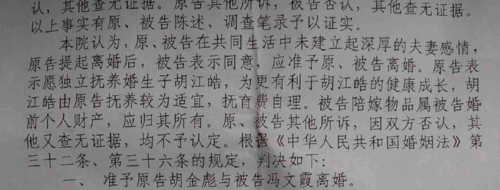 认，其他查无证据。原告其他所诉，被告否认，其他查无证据。
以上事实有原、被告陈述、调查笔录予以证实。
本院认为，原、被告在共同生活中未建立起深厚的夫妻感情，
原告提起离婚后，被告表示同意，应准予原、被告离婚。原告表
示愿独立抚养婚生子胡江皓，为更有利于胡江皓的健康成长，胡
江皓由原告抚养较为适宜，抚育费自理。被告陪嫁物品属被告婚
前个人财产，应归其所有。原、被告其他所诉，因双方否认，其
他又查无证据，均不予认定。根据《中华人民共和国婚姻法》第
三十二条、第三十六条的规定，判决如下：
一、准予原告胡金彪与被告冯文霞离婚。